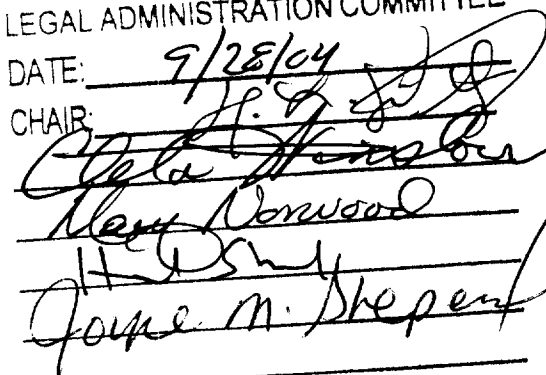 LEGAL ADMINISTRATION COMMITTEE
DATE: 9/28/04
CHAIR:
Cleta Winslow
Mary Norwood
Joyce M. Sheperd